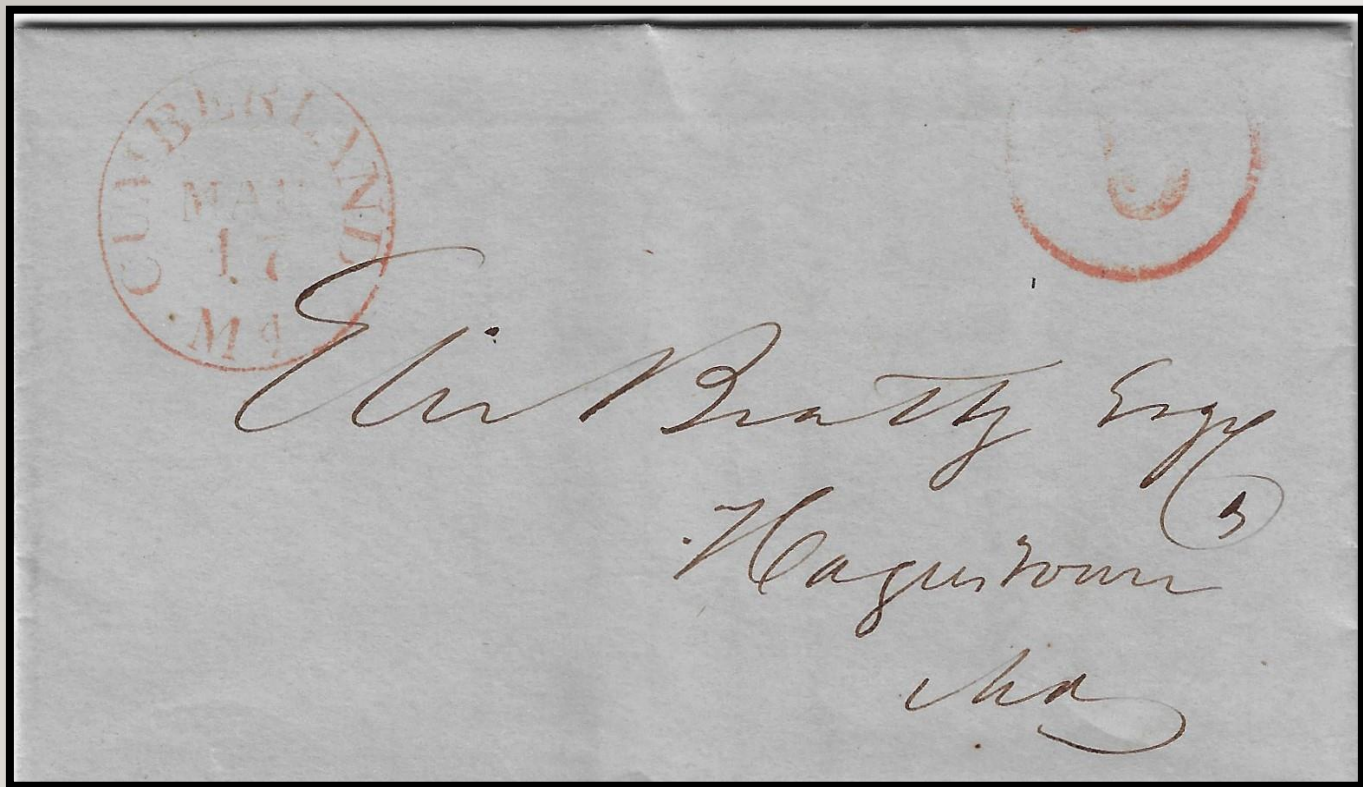 CUMBERLAND
MAR
17
Md
5
Elie Beatty Esqr
Hagerstown
Md